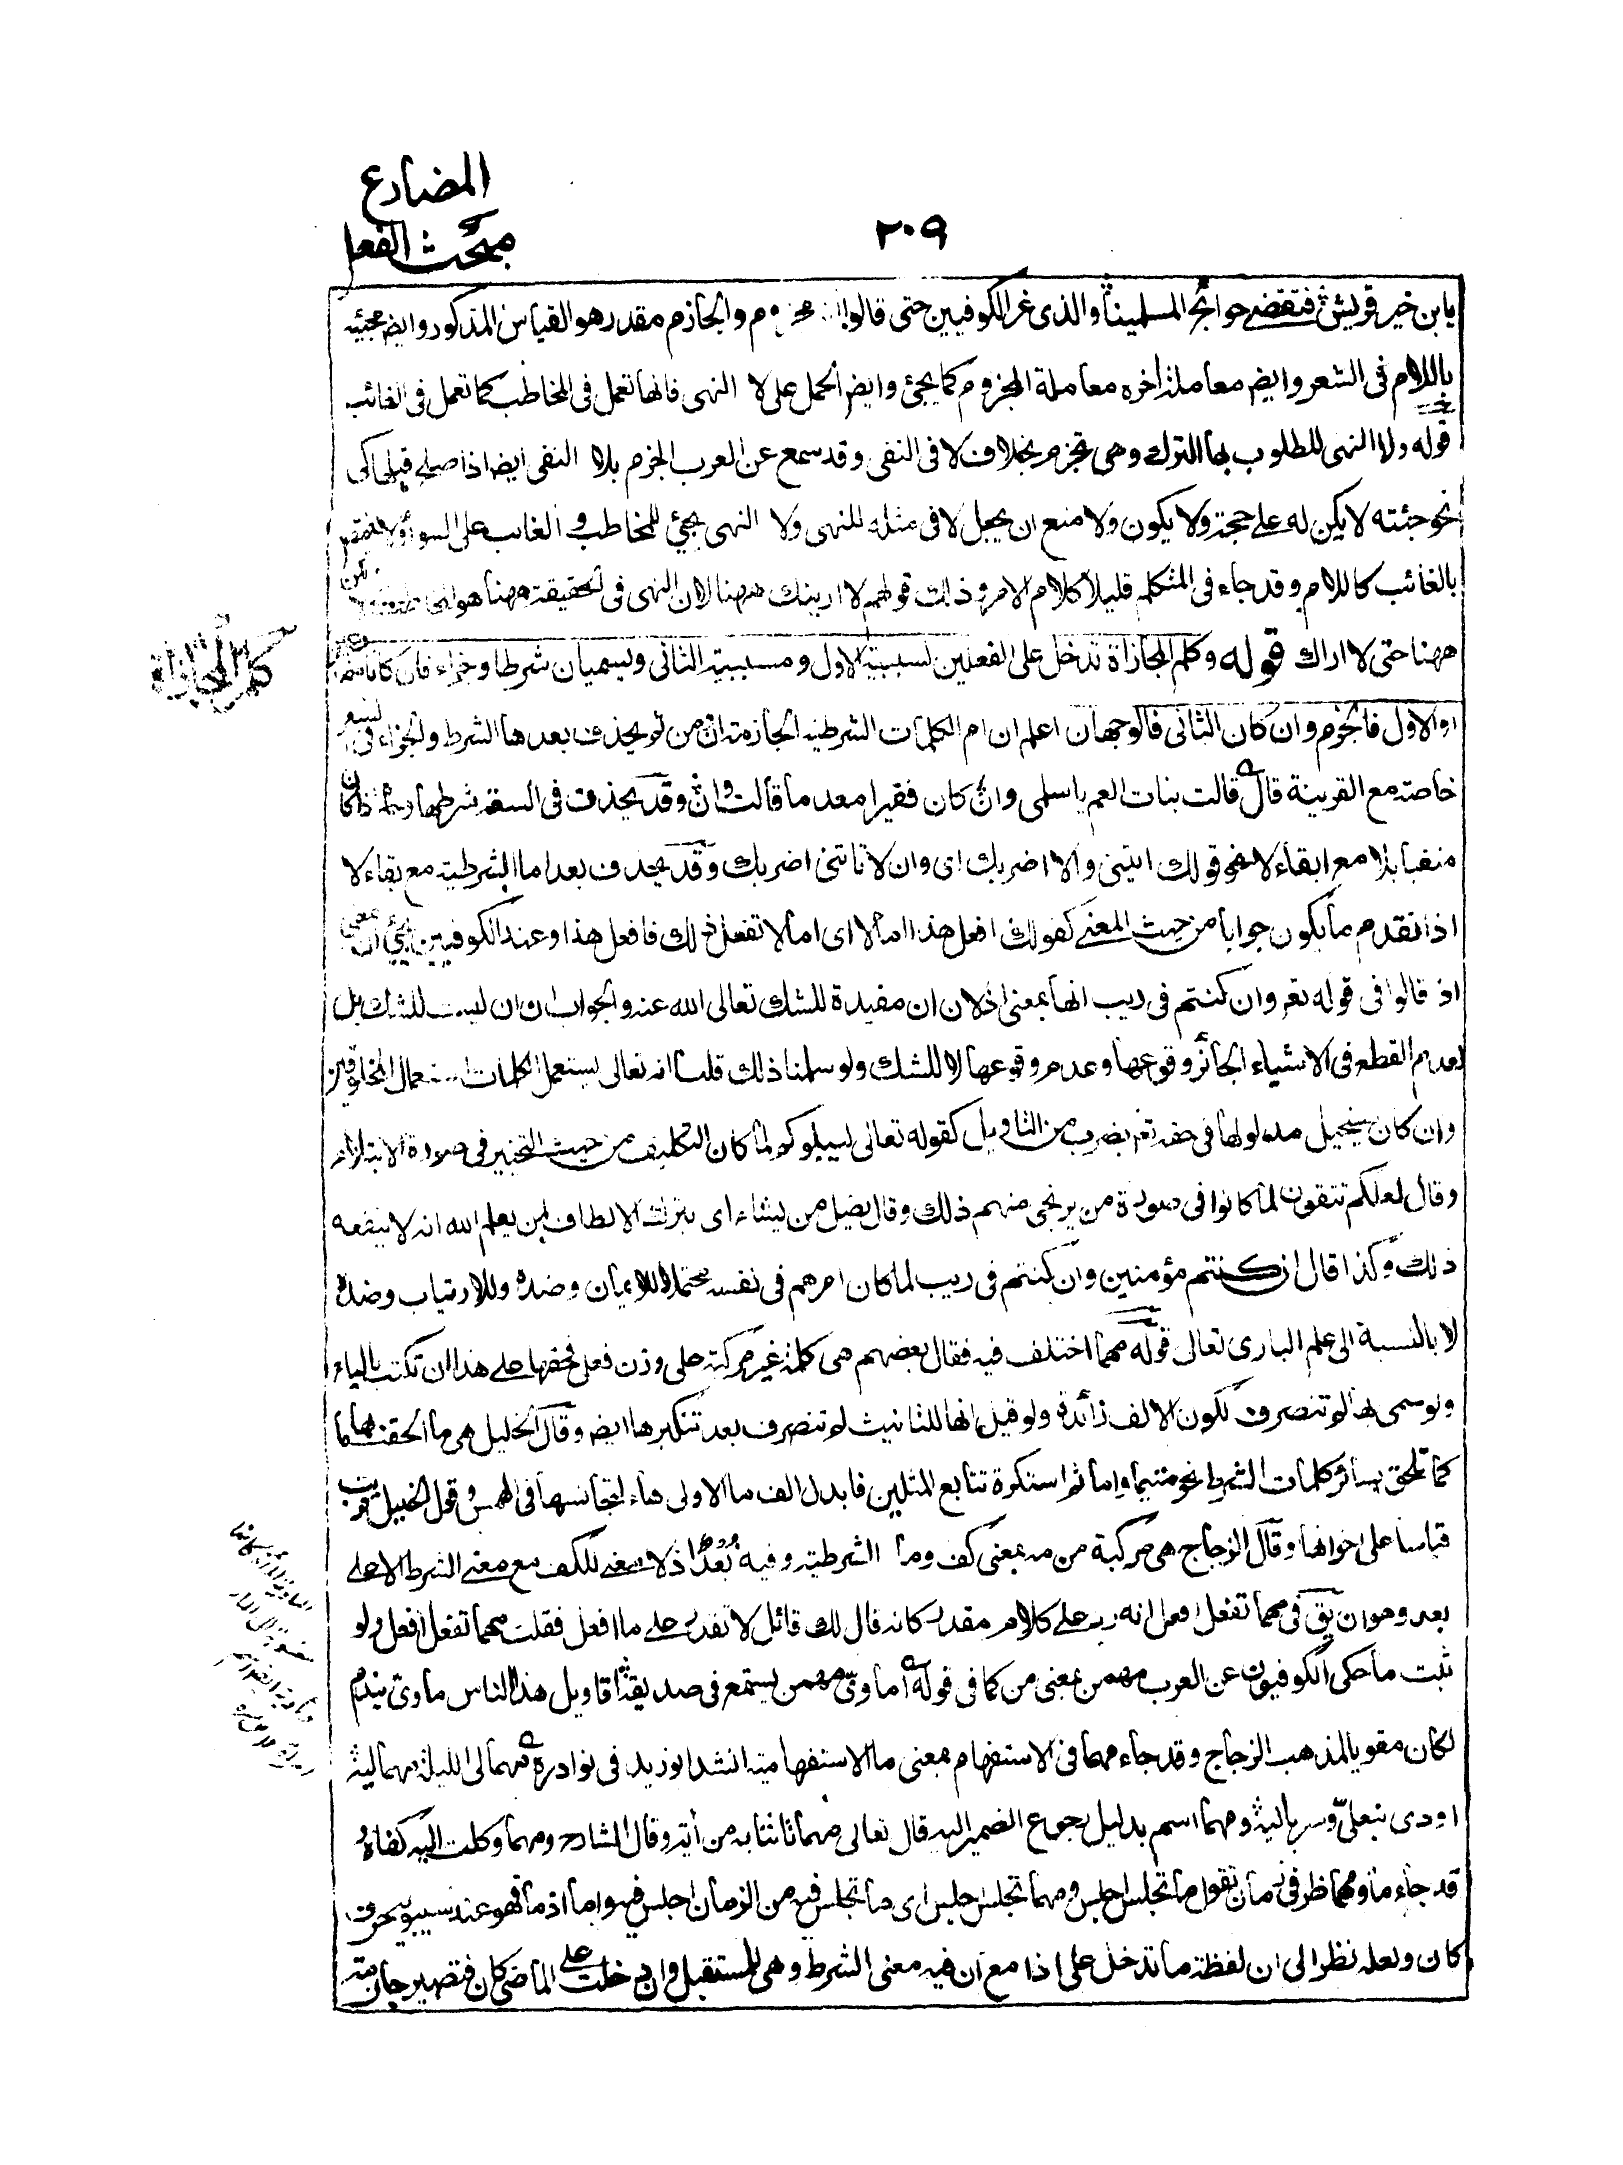 المضارع
مبحث الفعل
٢٠٩
يابن خير قريش فتقضى حوائج المسلمينا والذى غر الكوفيين حتى قالوا انه مجزوم والجازم مقدر هو القياس المذكور وايض مجيئه
باللام فى الشعر وايض معاملة اخره معاملة المجزوم كما يجئ وايض الحمل على لا النهى فانها تعمل فى المخاطب كما تعمل فى الغائب
قوله ولا النهى المطلوب بها الترك وهى تجزم بخلاف لا فى النفى وقد سمع عن العرب الجزم بلا النفى ايضا اذا صلح قبلها كى
نحو جئته لا يكن له على حجة ولا يكون ولا منع ان يجعل لا فى مثله للنهى ولا النهى يجئ للمخاطب والغائب على السواء ولا تختص
بالغائب كاللام وقد جاء فى المتكلم قليلا كلام الامر وذلك قولهم لا ارينك ههنا لان النهى فى الحقيقة ههنا هو
ههنا حتى لا اراك قوله وكلم المجازاة تدخل على الفعلين لسببية الاول ومسببية الثانى ويسميان شرطا وجزاء فان كانا مضارعين
او الاول فالجزم وان كان الثانى فالوجهان اعلم ان ام الكلمات الشرطية الجازمة ان من ثم يحذف بعدها الشرط والجزاء فى الشعر
خاصة مع القرينة قال قالت بنات العم يا سلمى وان كان فقيرا معدما قالت وان وقد يحذف فى السعة شرطها وحده اذا كان
منفيا بلا مع ابقاء لا نحو قولك ايتينى والا اضربك اى وان لا تاتنى اضربك وقد يحذف بعد اما الشرطية مع بقاء لا
اذا تقدم ما يكون جوابا من حيث المعنى كقولك افعل هذا اما لا اى اما لا تفعل ذلك فافعل هذا وعند الكوفيين يجئ ان بمعنى
اذ قالوا فى قوله تعم وان كنتم فى ريب انها بمعنى اذ لان ان مفيدة للشك تعالى الله عنه والجواب ان ان ليست للشك بل
لعدم القطع فى الاشياء الجائز وقوعها وعدم وقوعها لا للشك ولو سلمنا ذلك قلنا انه تعالى يستعمل الكلمات استعمال المخلوقين
وان كان يستحيل مدلولها فى حقه تعم بضرب من التاويل كقوله تعالى ليبلوكم لما كان التكليف من حيث التخيير فى صورة الابتلاء
وقال لعلكم تتقون لما كانوا فى صورة من يرتجى منهم ذلك وقال يضل من يشاء اى يترك الالطاف لمن يعلم الله انه لا ينفعه
ذلك وكذا قال ان كنتم مؤمنين وان كنتم فى ريب لما كان امرهم فى نفسه محتملا للايمان وضده وللارتياب وضده
لا بالنسبة الى علم البارى تعالى قوله مهما اختلف فيه فقال بعضهم هى كلمة غير مركبة على وزن فعلى فحقها على هذا ان تكتب بالياء
ولو سمى بها لم تنصرف لكون الالف زائدة ولو قيل انها للتانيث لم تنصرف بعد تنكيرها ايض وقال الخليل هى ما الحقت بها ما
كما تلحق بسائر كلمات الشرط نحو متيما واما ثم استكرة تتابع المثلين فابدل الف ما الاولى هاء لتجانسهما فى الهمس وقول الخليل قريب
قياسا على اخواتها وقال الزجاج هى مركبة من مه بمعنى كف وما الشرطية وفيه بعد اذ لا معنى للكف مع معنى الشرط الا على
بعد وهو ان يق فى مهما تفعل افعل انه رد على كلام مقدر كانه قال لك قائل لا تقدر على ما افعل فقلت مهما تفعل افعل ولو
ثبت ما حكى الكوفيون عن العرب مهمن بمعنى من كما فى قوله اماوى مهمن يستمع فى صديقه اقاويل هذا الناس ماوى يندم
لكان مقويا لمذهب الزجاج وقد جاء مهما فى الاستفهام بمعنى ما الاستفهامية انشد ابوزيد فى نوادره مهما لى الليلة مهما ليه
اودى بنعلى وسرباليه ومهما اسم بدليل رجوع الضمير اليه قال تعالى مهما تاتنا به من آية وقال الشارح ومهما وكلت اليه كفاه
قد جاء ما ومهما ظرفى زمان تقول ما تجلس اجلس ومهما تجلس اجلس اى ما تجلس فيه من الزمان اجلس فيه واما اذما فهو عند سيبويه حرف
كان ولعله نظر الى ان لفظة ما تدخل على اذا مع ان فيه معنى الشرط وهى للمستقبل وان دخلت على الماضى كان فتصير جازمة
كلم المجازاة